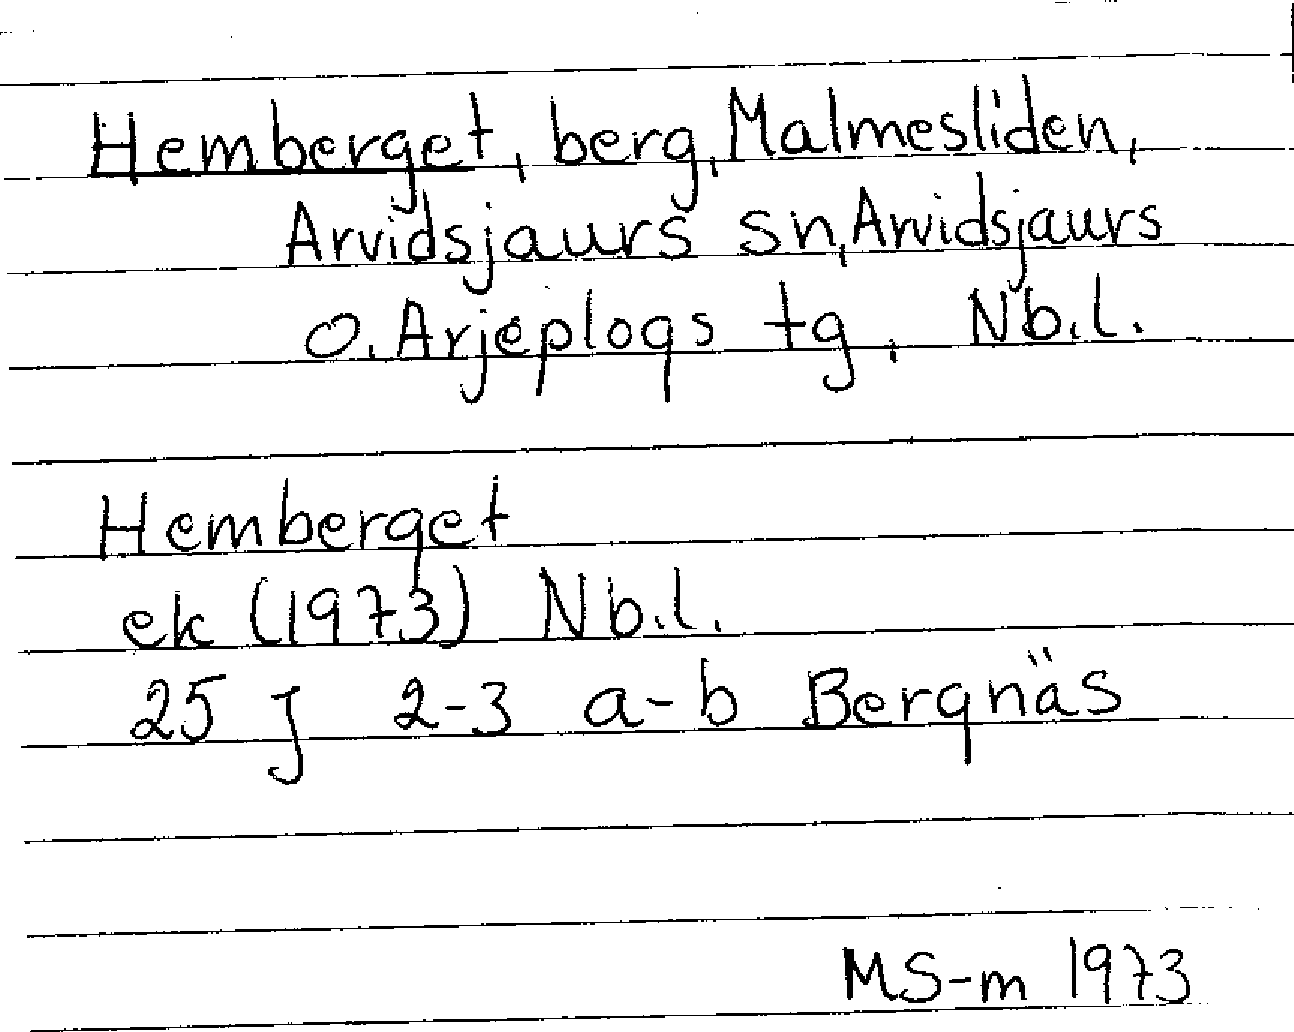 Hemberget, berg, Malmesliden,
Arvidsjaurs sn, Arvidsjaurs
o. Arjeplogs tg, Nb.l.
Hemberget
ek (1973) Nb.l.
25 J 2-3 a-b Bergnäs
MS-m 1973